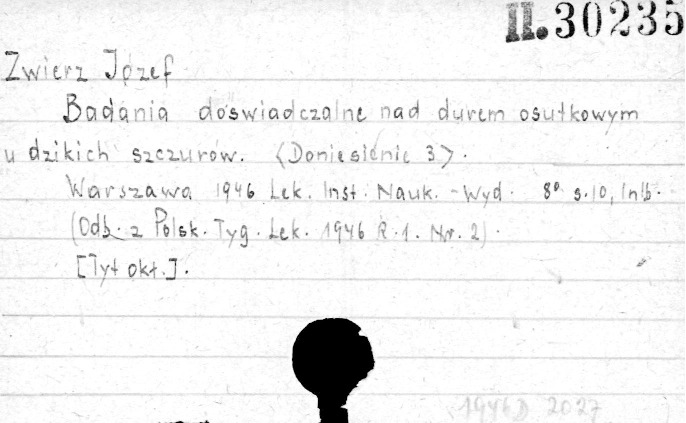 II. 30235
Zwierz Józef
Badania doświadczalne nad durem osutkowym
u dzikich szczurów. <Doniesienie 3>.
Warszawa 1946 Lek. Inst. Nauk.-Wyd. 8° s.10, 1nlb.
(Odb. z Polsk. Tyg. Lek. 1946 R.1. Nr. 2).
[Tyt okł.].
1946D 2027